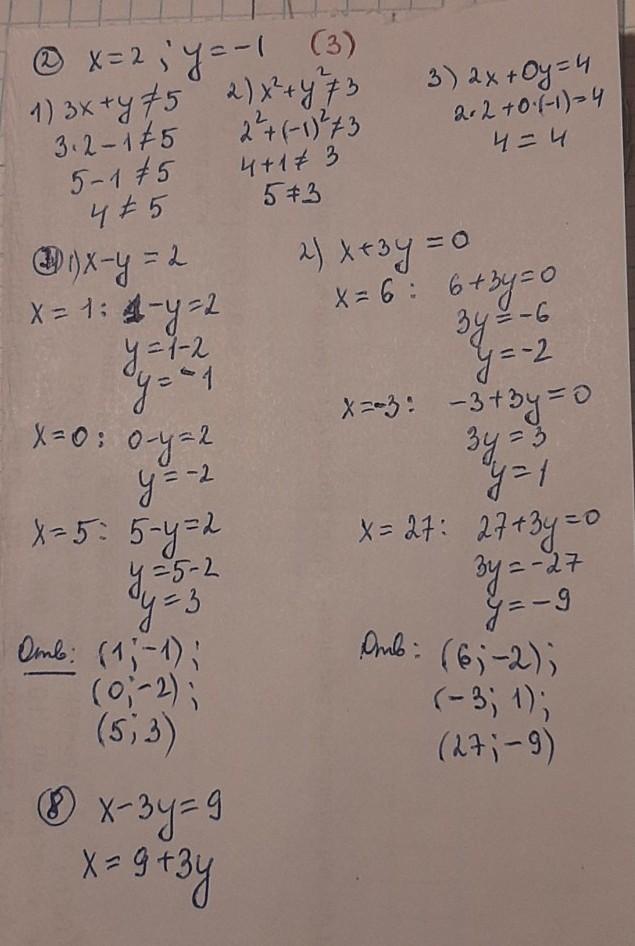 ② x=2 ; y=-1 (3)
1) 3x+y≠5
3·2-1≠5
5-1≠5
4≠5
2) x²+y²≠3
2²+(-1)²≠3
4+1≠3
5≠3
3) 2x+0y=4
2·2+0·(-1)=4
4=4
③ 1) x-y=2
x=1: 1-y=2
y=1-2
y=-1
x=0: 0-y=2
y=-2
x=5: 5-y=2
y=5-2
y=3
Отв: (1;-1);
(0;-2);
(5;3)
2) x+3y=0
x=6: 6+3y=0
3y=-6
y=-2
x=-3: -3+3y=0
3y=3
y=1
x=27: 27+3y=0
3y=-27
y=-9
Отв: (6;-2);
(-3; 1);
(27;-9)
⑧ x-3y=9
x=9+3y